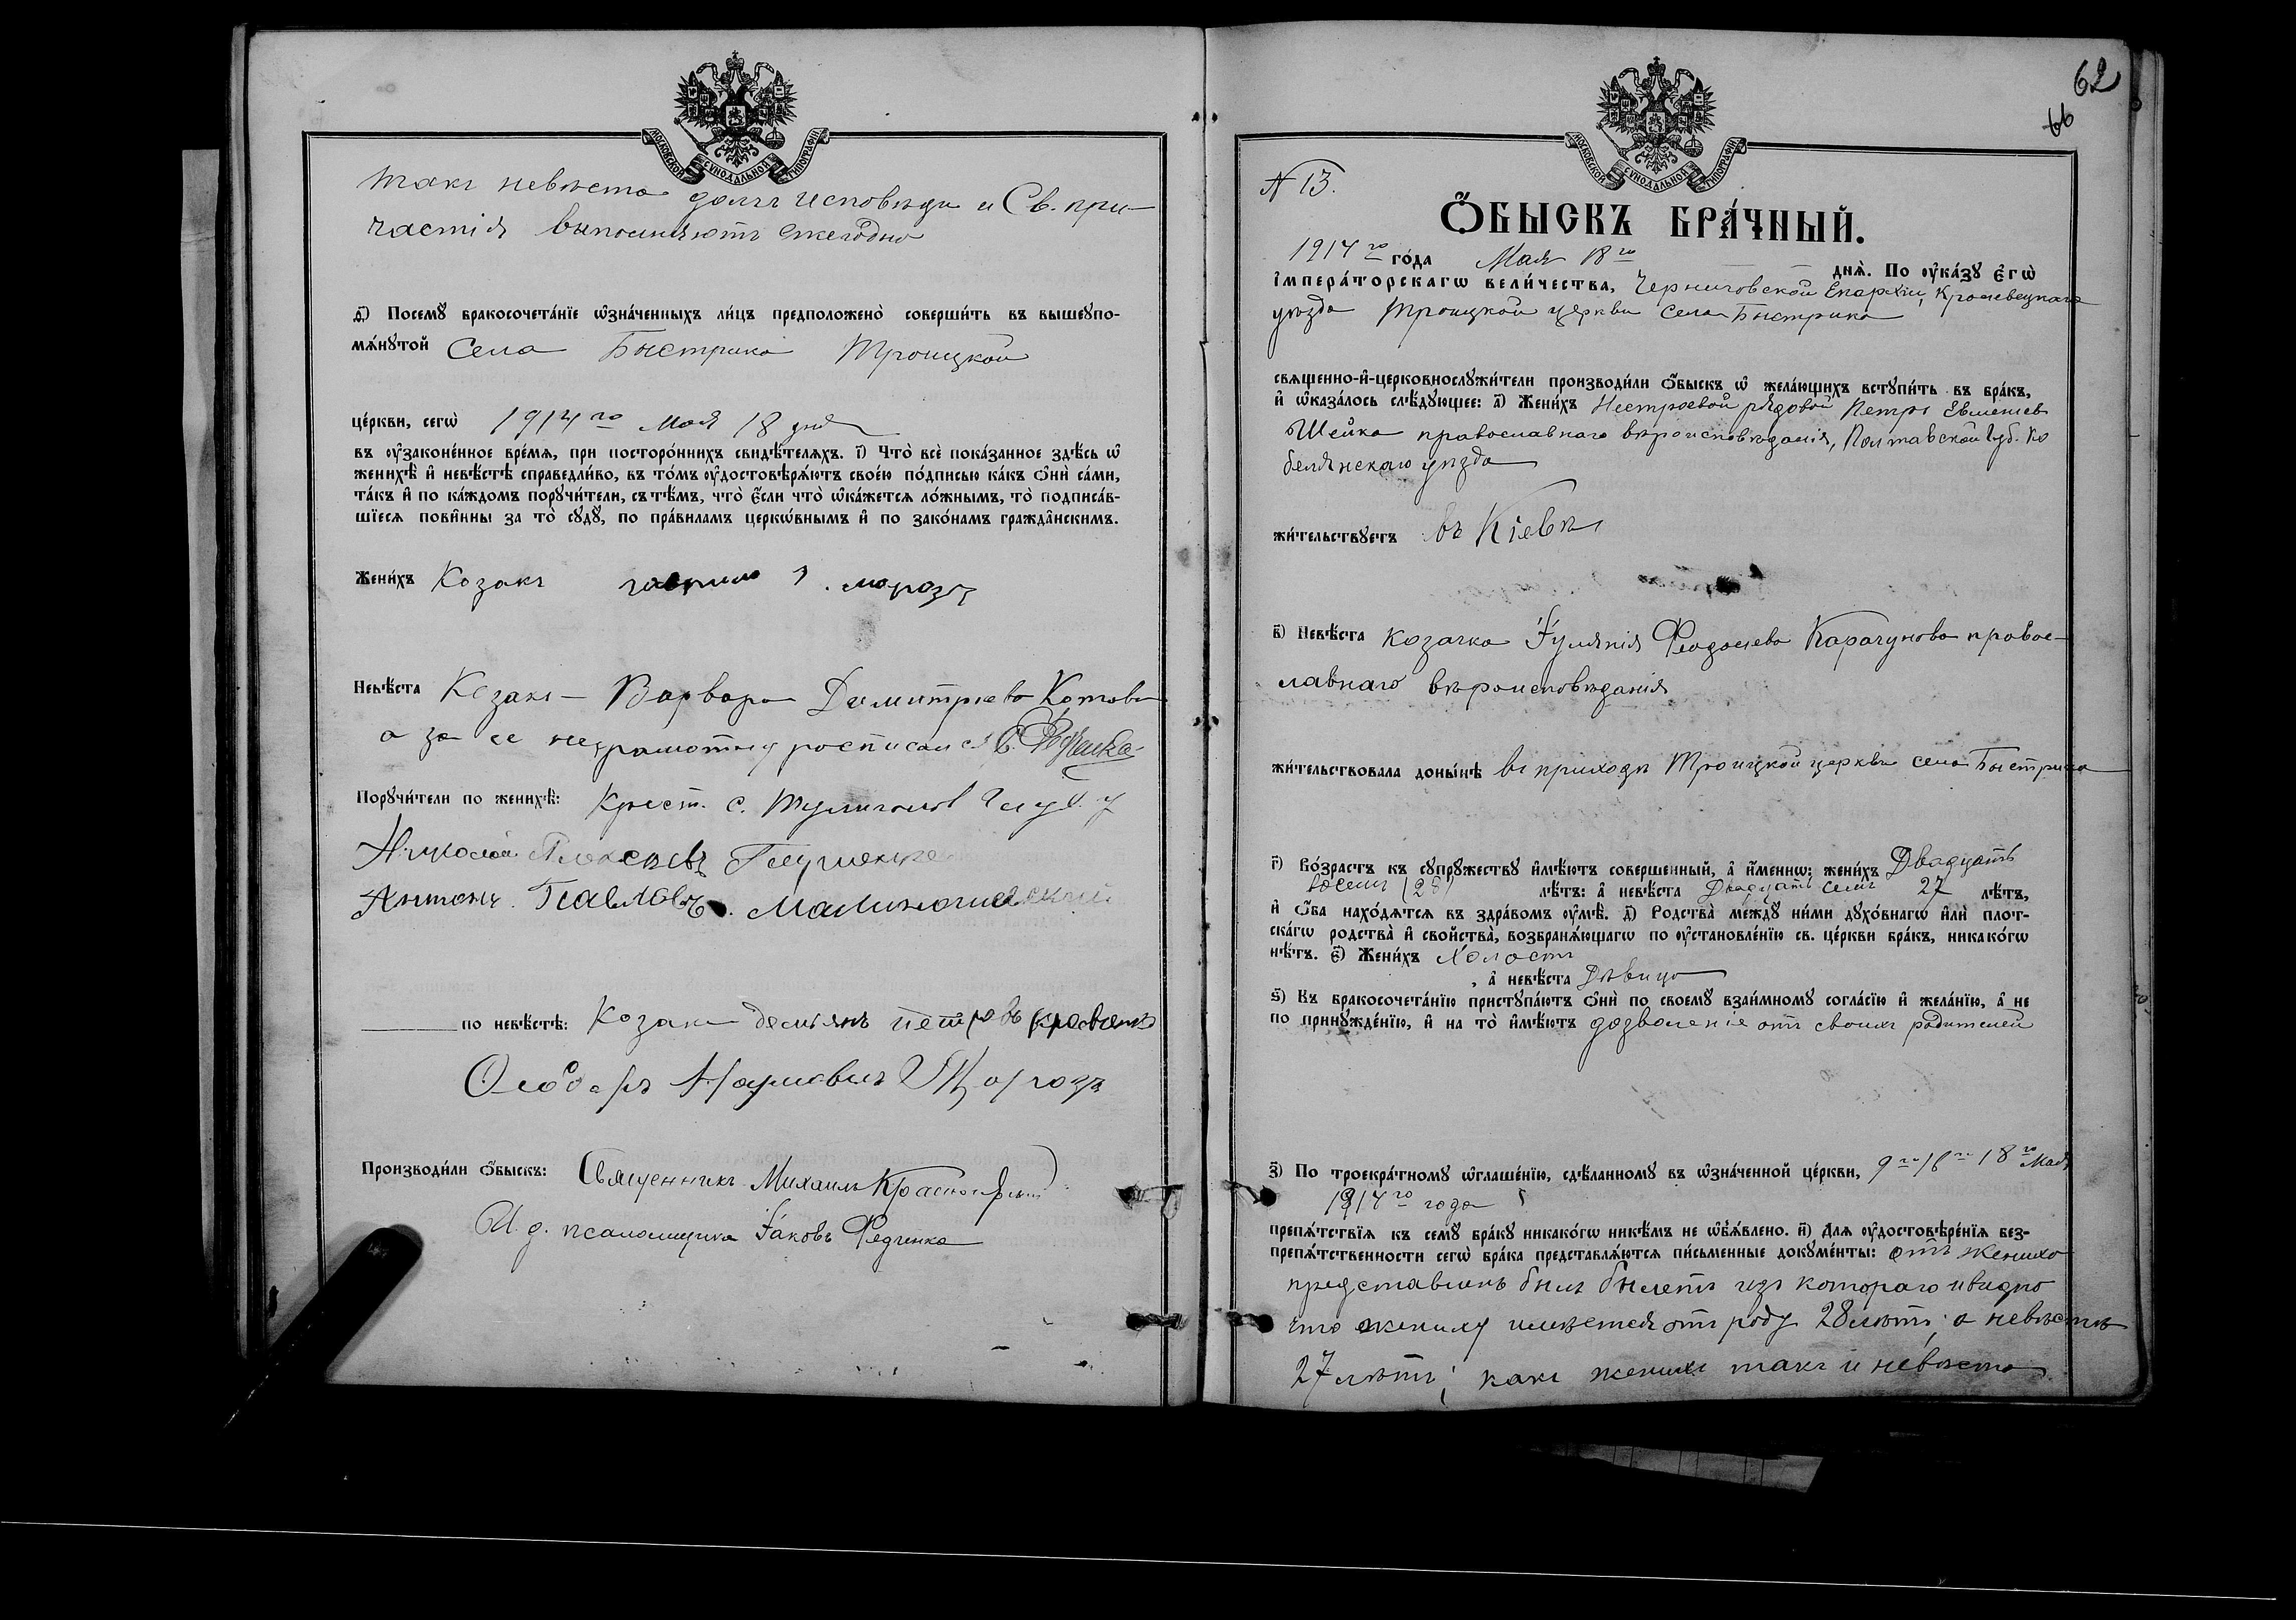 МОСКОВСКОЙ СѴНОДАЛЬНОЙ ТИПОГРАФІИ
такъ невѣста долгъ исповѣди и Св. при-
частія выполняютъ ежегодно
Посемꙋ̀ бракосочета́нїе ѡ҆зна́ченныхъ ли́цъ предположено̀ соверши́ть въ вышеꙋпо-
мѧ́нꙋтой Села Быстрика Троицкой
це́ркви, сегѡ̀ 1914 го Мая 18 дня
въ ᲂу҆законе́нное вре́мѧ, при посторо́ннихъ свидѣ́телѧхъ. і҃) Что̀ всѐ пока́занное здѣ́сь ѡ҆
женихѣ̀ и҆ невѣ́стѣ справедли́во, въ то́мъ ᲂу҆достовѣрѧ́ютъ свое́ю по́дписью ка́къ ѻ҆нѝ са́ми,
та́къ и҆ по ка́ждомъ порꙋчи́тели, съ тѣ́мъ, что̀ є҆́сли что̀ ѡ҆ка́жетсѧ ло́жнымъ, то̀ подписа́в-
шїесѧ пови́нны за то̀ сꙋдꙋ̀, по пра́виламъ церкѡ́внымъ и҆ по зако́намъ гражда̑нскимъ.
Жени́хъ Козакъ морозъ
Невѣ́ста Козач- Варвара Димитріева Котова
а за ее неграмотну росписался
Порꙋчи́тели по женихѣ̀: Крест. с. Тулиголов Глух. у
Николай Алексѣевъ
Антонъ Павловъ. Малиновский
по невѣ́стѣ: Козакъ демьянъ петровъ
Наумовичъ
Производи́ли ѻ҆́быскъ: Священникъ Михаилъ
И. д. псаломщика Іаковъ Федченко
62
66
МОСКОВСКОЙ СѴНОДАЛЬНОЙ ТИПОГРАФІИ
N 13.
Ѻ҆́БЫСКЪ БРА́ЧНЫЙ.
1914 го го́да Мая 18 го днѧ̀. По ᲂу҆ка́зꙋ є҆гѡ̀
і҆мпера́торскагѡ вели́чества, Черниговской Епархіи, Кролевецкаго
уѣзда Троицкой церкви села Быстрика
свѧщенно-и҆-церковнослꙋжи́тели производи́ли ѻ҆́быскъ ѡ҆ жела́ющихъ вступи́ть въ бра́къ,
и҆ ѡ҆каза́лось слѣ́дꙋющее: а҃) Жени́хъ Нестроевой рядовой Петръ
Шейко православнаго вѣроисповѣданія, Полтавской Губ. Ко
белякскаго уѣзда
жи́тельствꙋетъ въ Кіевѣ
в҃) Невѣ́ста козачка Іулянія Феодосіева Карачунова правос-
лавнаго вѣроисповѣданія
жи́тельствовала доны́нѣ въ приходѣ Троицкой церкви села Быстрика
г҃) Во́зрастъ къ сꙋпрꙋ́жествꙋ и҆мѣ́ютъ соверше́нный, а҆ и҆́меннѡ: жени́хъ Двадцать
восемь (28) лѣ́тъ: а҆ невѣ́ста Двадцать семь 27 лѣ́тъ,
и҆ ѻ҆́ба нахо́дѧтсѧ въ здра́вомъ ᲂу҆мѣ̀. д҃) Родства̀ междꙋ ни́ми дꙋхо́внагѡ и҆лѝ плот-
ска́гѡ родства̀ и҆ свойства̀, возбранѧ́ющагѡ по ᲂу҆становле́нїю св. це́ркви бра́къ, никако́гѡ
нѣ́тъ. є҃) Жени́хъ Холостъ
, а҆ невѣ́ста Дѣвица
ѕ҃) Къ бракосочета́нїю пристꙋпа́ютъ ѻ҆нѝ по своемꙋ̀ взаи́мномꙋ согла́сїю и҆ жела́нїю, а҆ не
по принꙋжде́нїю, и҆ на то̀ и҆мѣ́ютъ дозволеніе отъ своихъ родителей
з҃) По троекра́тномꙋ ѡ҆глаше́нїю, сдѣ́ланномꙋ въ ѡ҆зна́ченной це́ркви, 9 го 18 го Мая
1914 го года
препѧ́тствїѧ къ семꙋ̀ бра́кꙋ никако́гѡ никѣ́мъ не ѡ҆б̾ѧ́влено. и҃) Длѧ ᲂу҆достовѣре́нїѧ без-
препѧ́тственности сегѡ̀ бра́ка представлѧ́ютсѧ пи́сьменные докꙋме́нты: отъ жениха
представленъ былъ билетъ изъ котораго и видно
что жениху имѣется отъ роду 28 лѣтъ; а невѣстѣ
27 лѣтъ; какъ женихъ такъ и невѣста